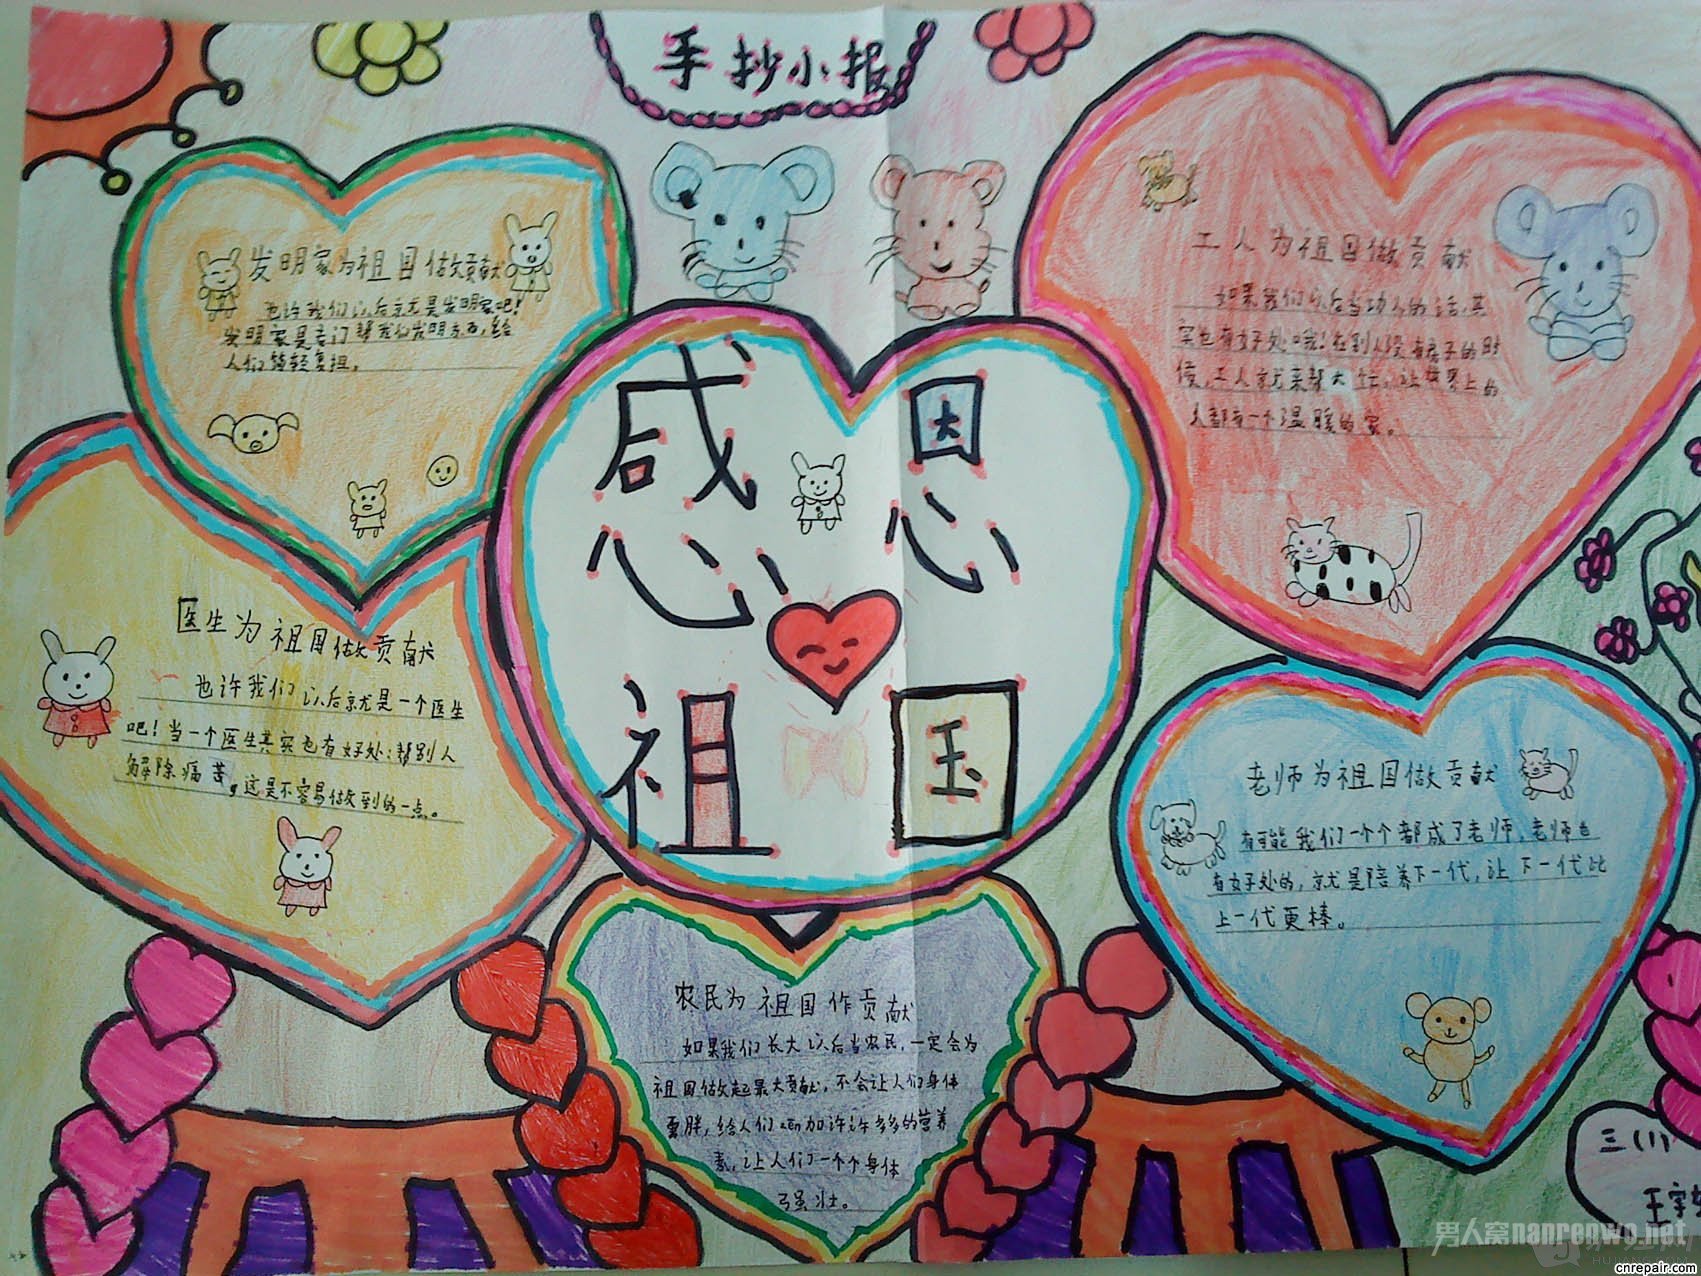 手抄小报
发明家为祖国做贡献
也许我们以后就是发明家吧!
发明家是专门帮我们发明东西,给
人们减轻负担。
工人为祖国做贡献
如果我们以后当功人的话,其
实也有好处哦!在别人没有房子的时
候,工人就来帮大忙,让世界上的
人都有一个温暖的家。
感恩
祖国
医生为祖国做贡献
也许我们以后就是一个医生
吧!当一个医生其实也有好处:帮别人
解除痛苦,这是不容易做到的一点。
老师为祖国做贡献
有可能我们一个个都成了老师,老师也
有好处的,就是陪养下一代,让下一代比
上一代更棒。
农民为祖国作贡献
如果我们长大以后当农民,一定会为
祖国做起最大贡献,不会让人们身体
胖,给人们zen加许许多多的营养
素,让人们一个个身体
强壮。
三(1)
王宇
男人窝nanrenwo.net
cnrepair.com